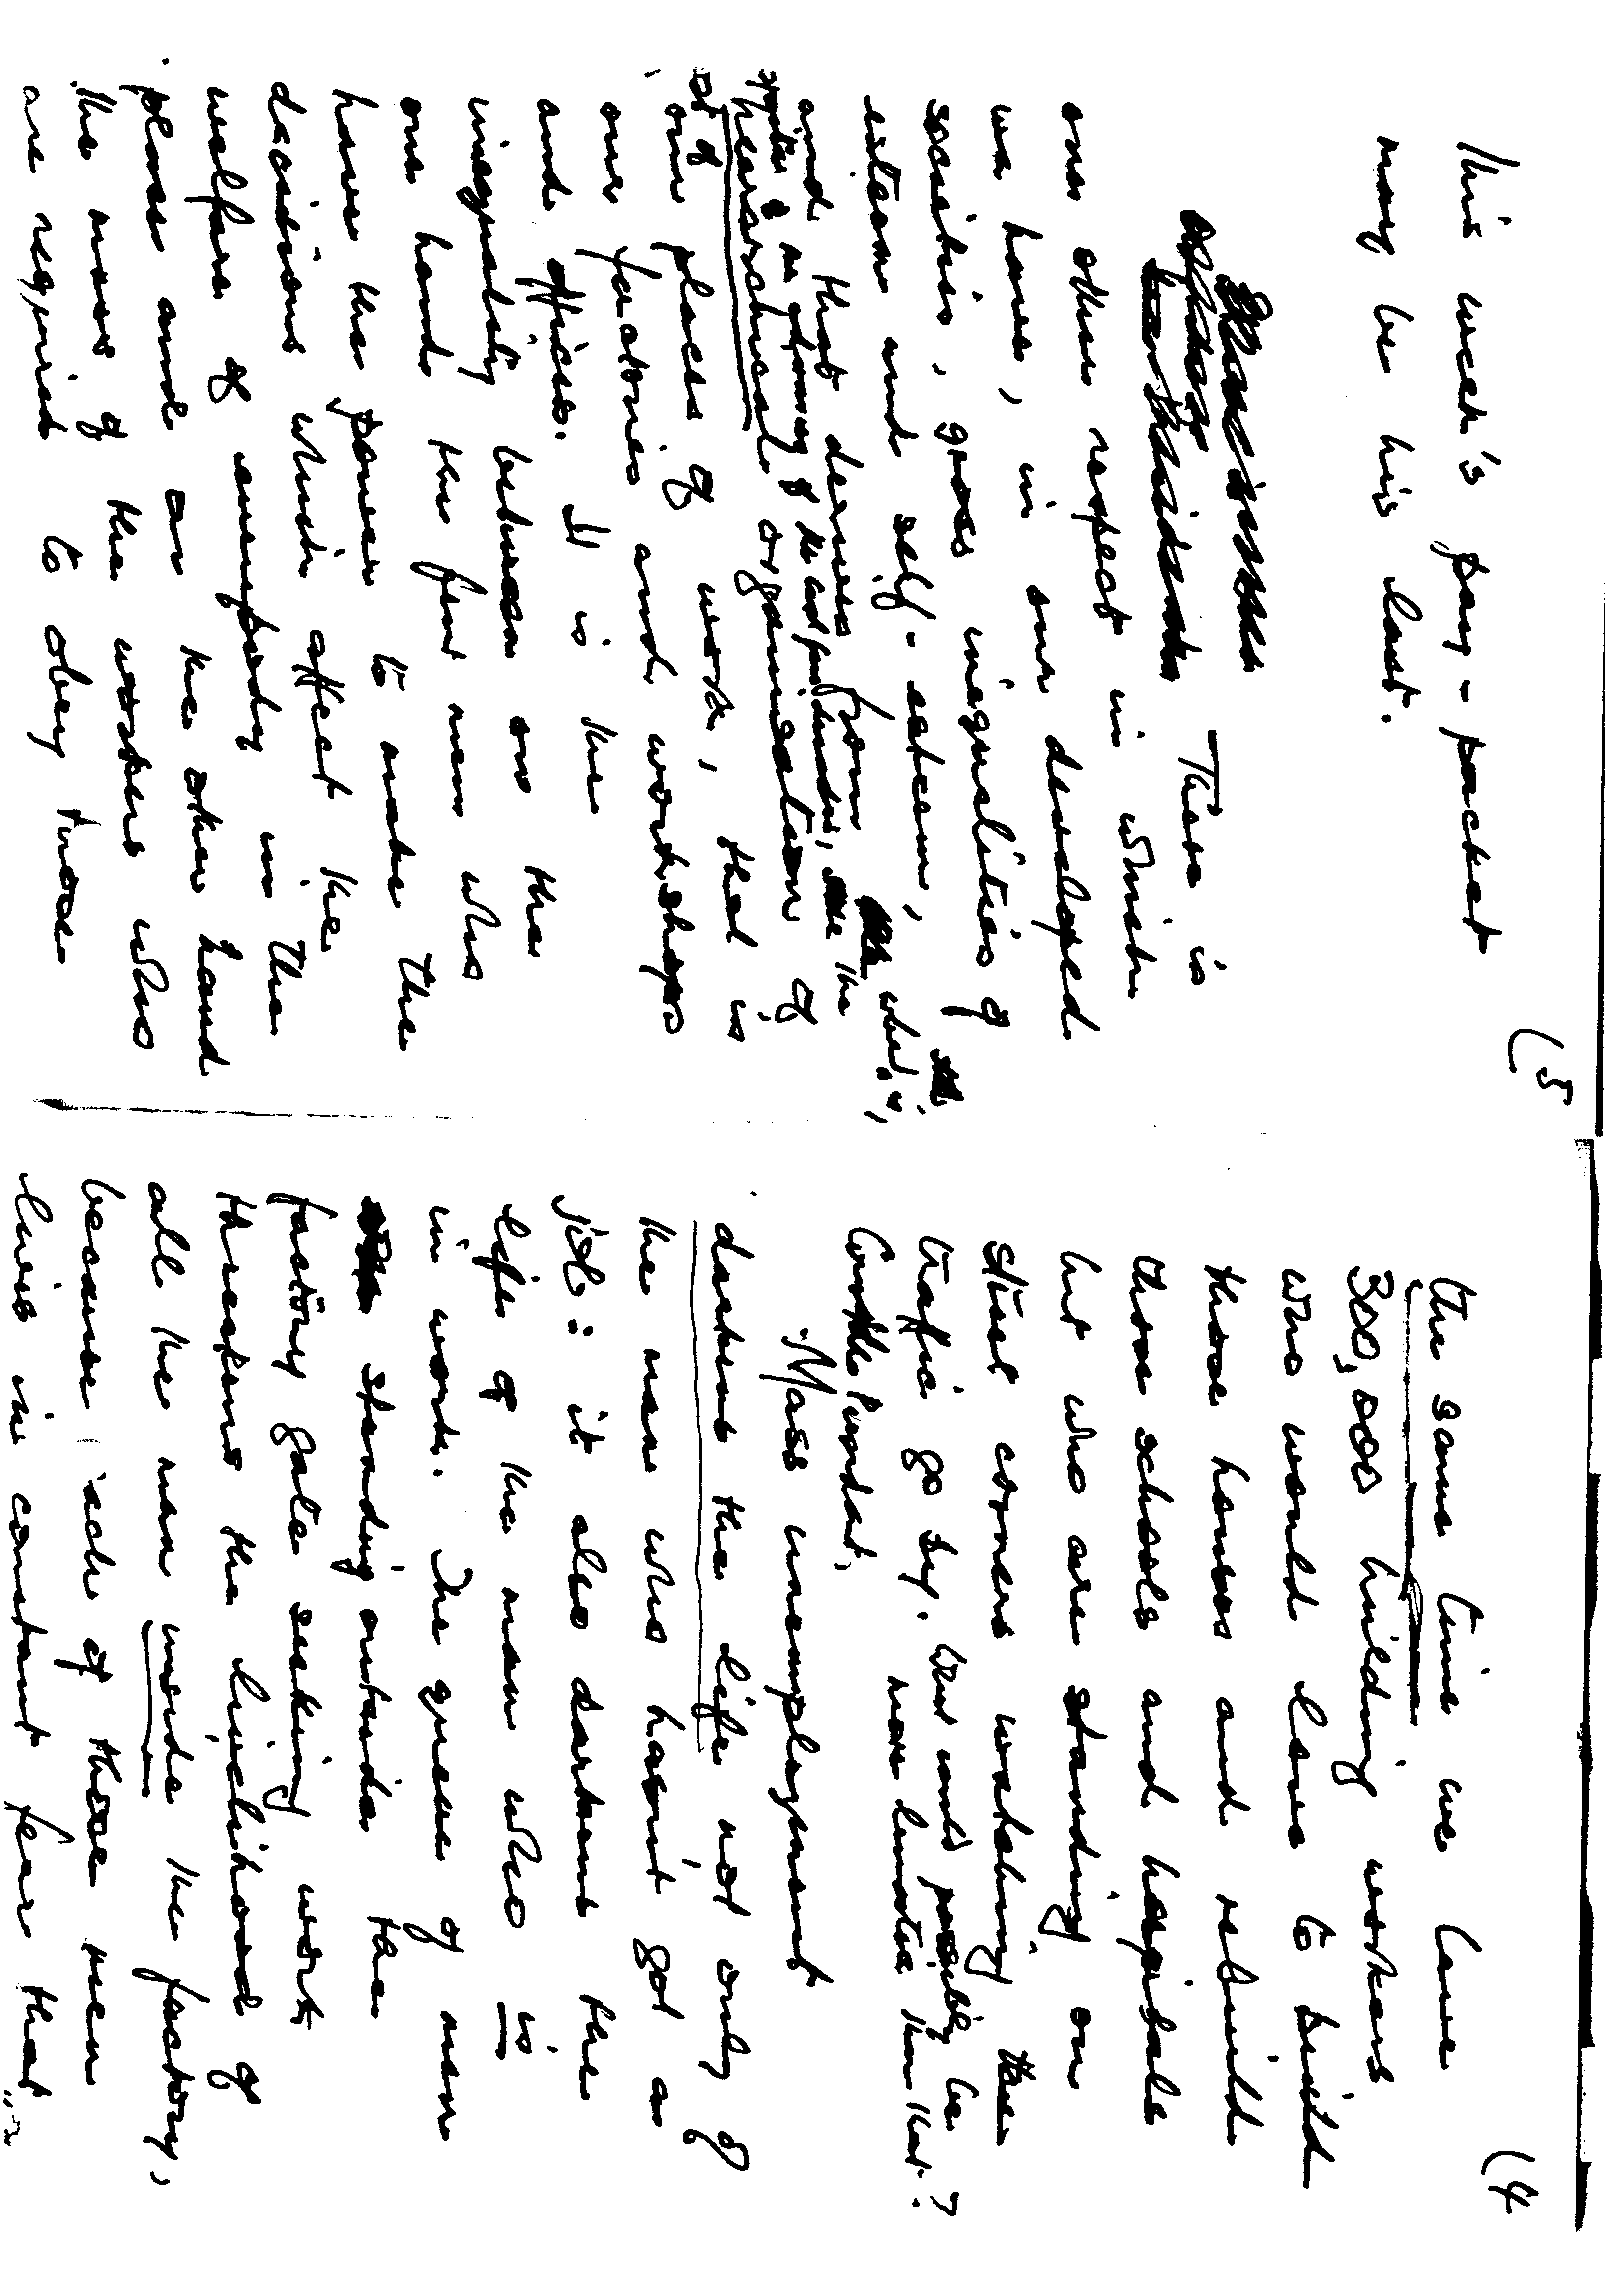 (4
the same time we have
300,000 building workers
who would love to build
those houses and rebuild
those schools and hospitals
but who are standing on
street corners watching the
traffic go by. What could possibly be
more lunatic than that?
Mass unemployment
darkens the life not only of
the man who hasn't got a
job: it also darkens the
life of the man who is
in work. The queue of men
standing outside the
factory gate seeking work
threatens the livelihood of
all the men inside the factory,
because each of those men
lives in constant fear that
(5
This week's pay-packet
may be his last.
There is
one other respect in which
we have, in our developed
societies, gross inequalities of
esteem and self-esteem,
and that derives from what is,
the
hierarchical organisation of
our places of work, that is
our factories and workshops
and offices. It is the
inequality between on the
one hand the few men who
have the power to make the
decisions which affect the
welfare of everybody in the
place and on the other hand
the mass of the workers who
are required to obey those